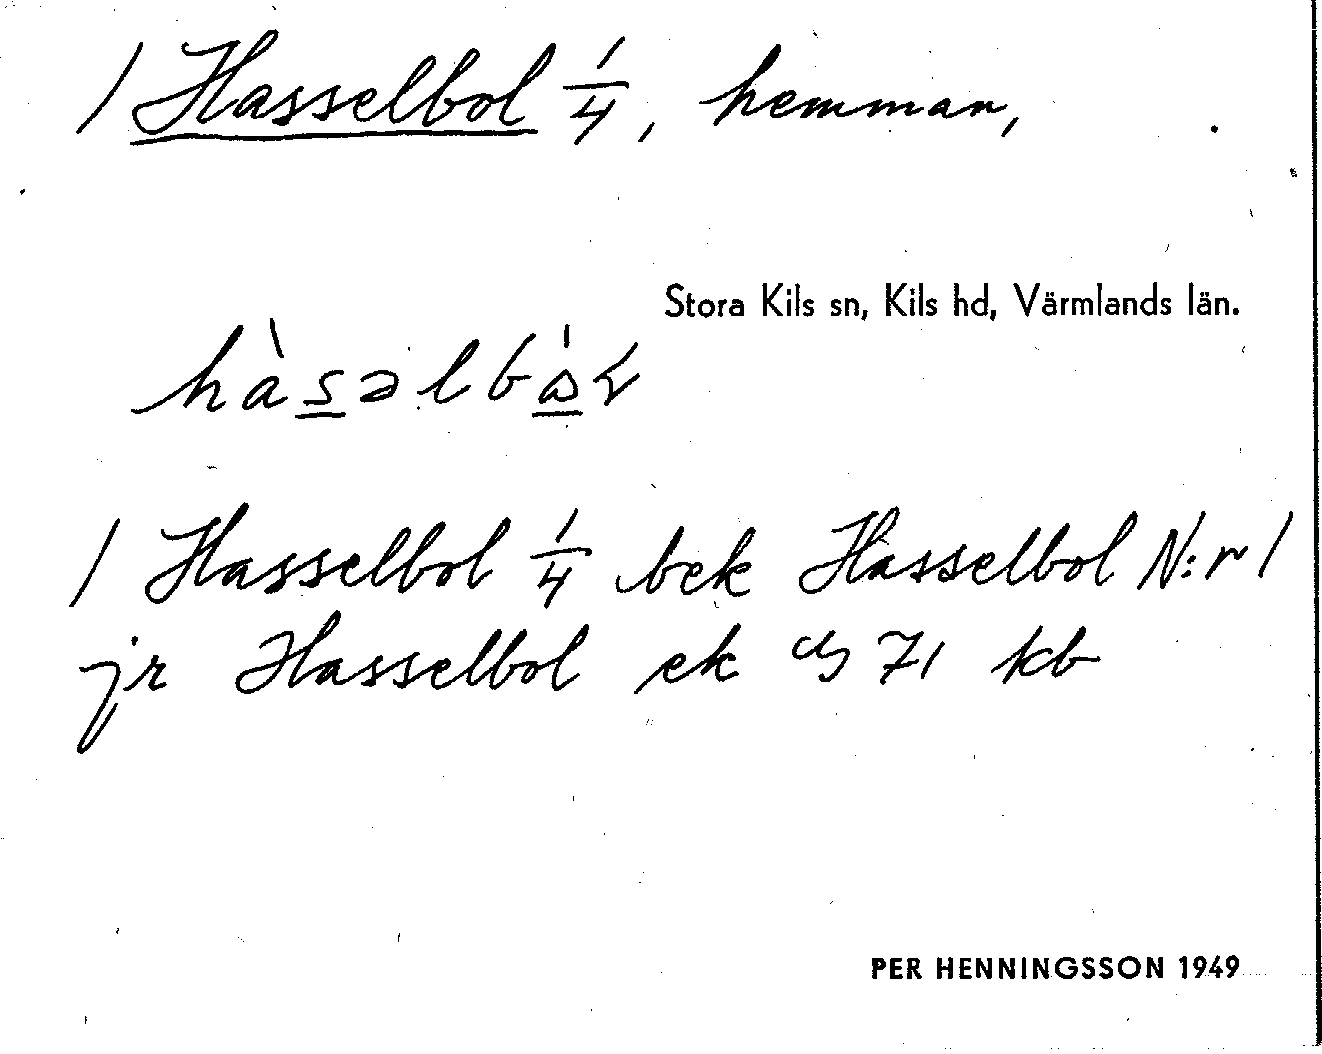 1 Hasselbol 1/4, hemman,
Stora Kils sn, Kils hd, Värmlands län.
1 Hasselbol 1/4 bek Hasselbol N:r 1
jr Hasselbol ek 71 kb
PER HENNINGSSON 1949